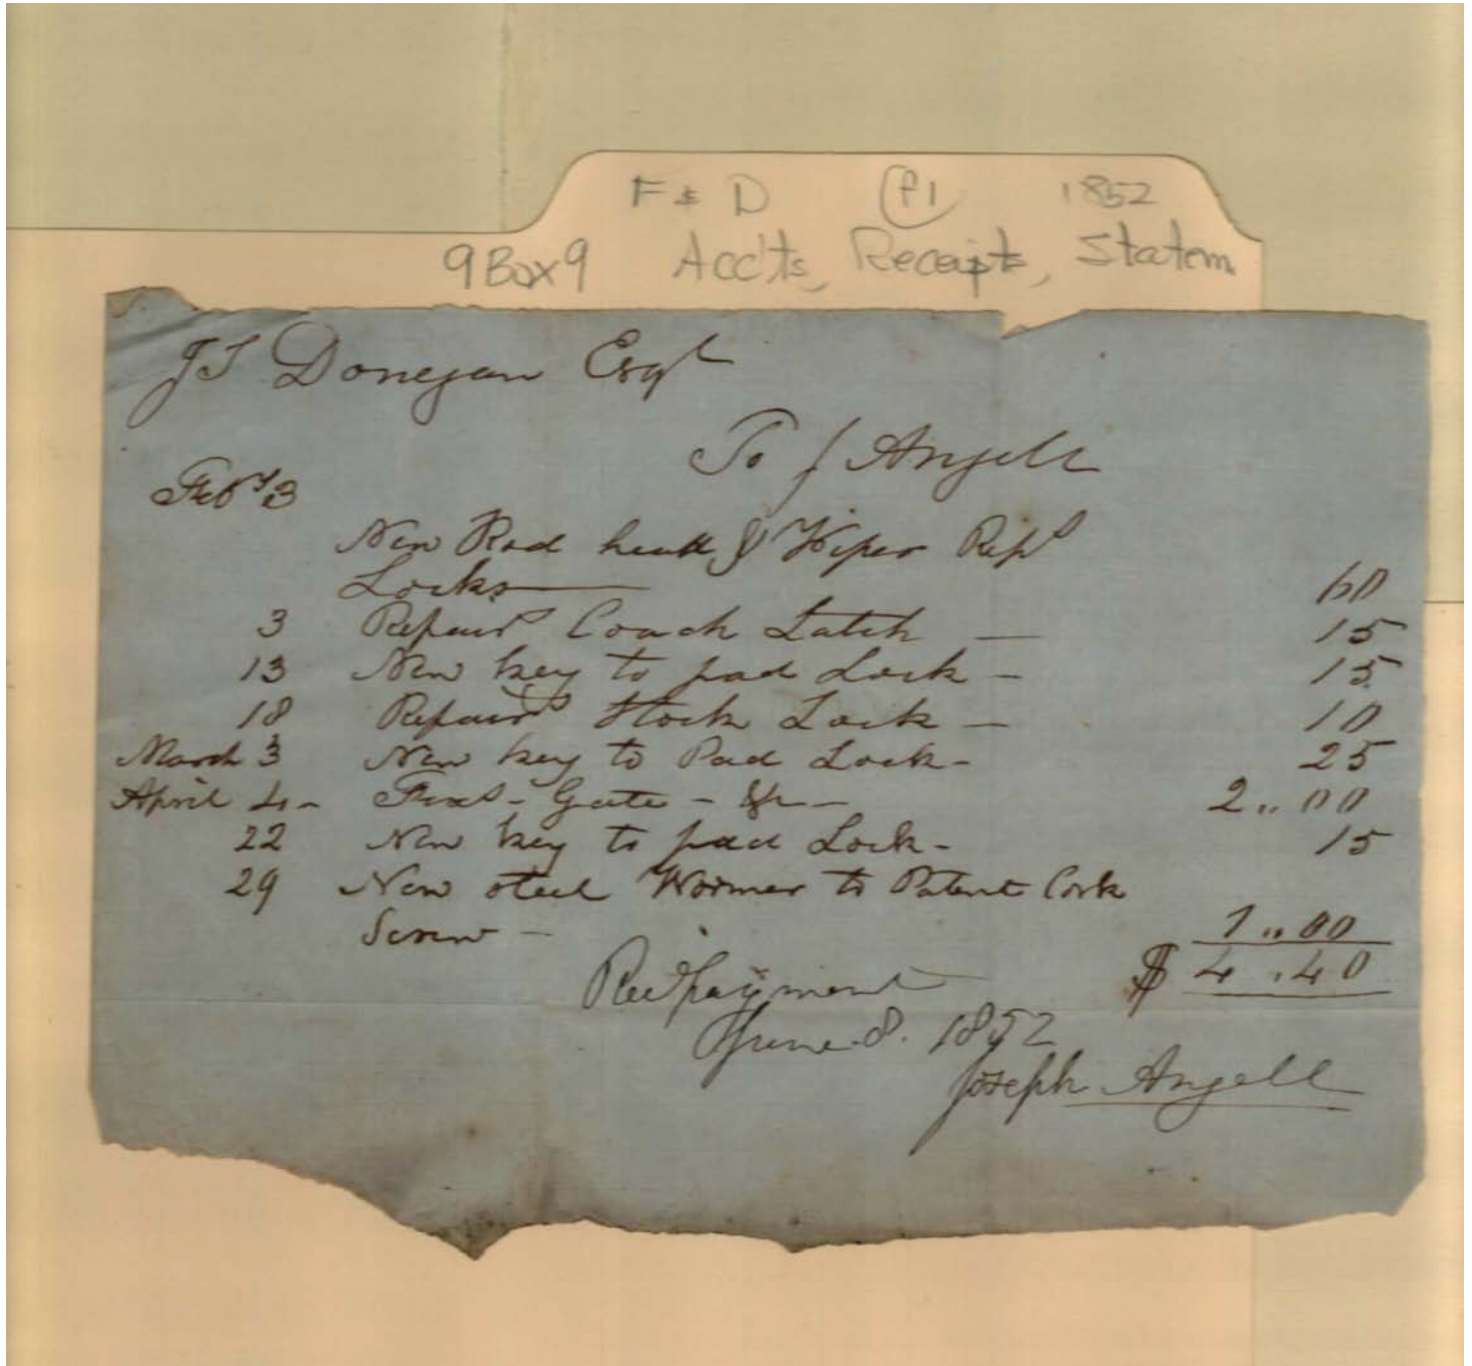 F & D P1 1852
9 Box 9 Acc'ts, Receipts, Statem
JS Donegan Esqr
To J Angell
Feby 3
New Rod & Wiper Repd
Locks — 60
3 Repaird Coach Latch — 15
13 New key to pad Lock - 15
18 Repaird Stock Lock — 10
March 3 New key to Pad Lock - 25
April 4 - Fixd - Gate - &c - 2..00
22 New key to pad Lock - 15
29 New steel Wormer to Patent Cork
Screw - 1..00
$ 4..40
Recd payment
June 8. 1852
Joseph Angell